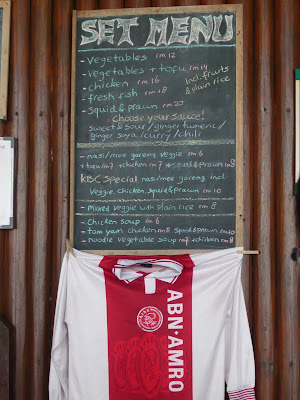 SET MENU
- Vegetables RM 12
- Vegetables + tofu RM 14
- chicken RM 16
- fresh fish RM 18
- Squid & prawn RM 20
Incl. fruits
& plain rice
Choose your sauce!
Sweet & Sour / ginger tumeric /
ginger soya / curry / chili
- nasi/mee goreng veggie RM 6
+ tofu RM 7 + chicken RM 7 + squid & prawn RM 8
KBC Special nasi/mee goreng incl
Veggie, chicken, squid & prawn RM 10
- Mixed Veggie with Plain rice RM 8
- Chicken soup RM 6
- tom yam chicken RM 8 squid & prawn RM 10
- noodle vegetable soup RM 7 + chicken RM 8
ABN·AMRO